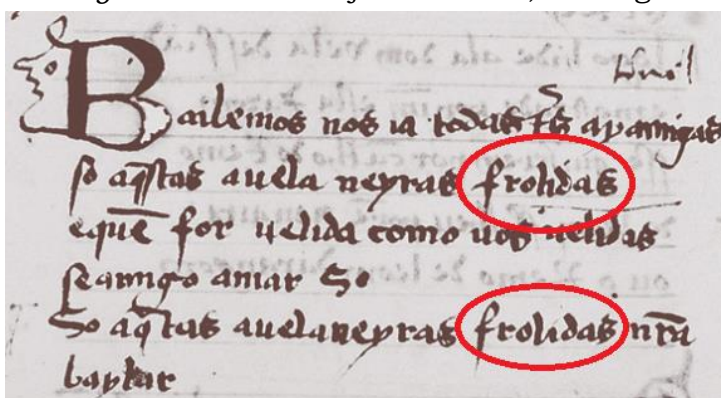 Bailemos nos ia todas tˢs ay amigas
so aq̃stas auela neyras frolidas
equẽ for uelida como uos uelidas
se amigo amar So
So aq̃stas auelaneyras frolidas uerra
baylar